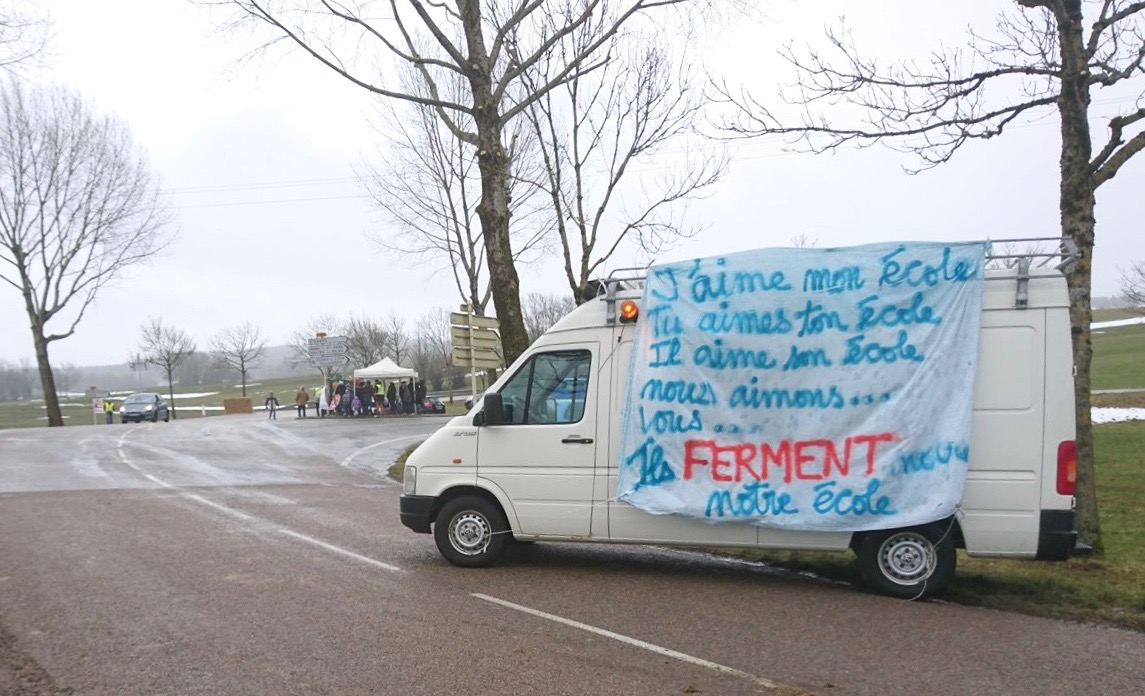 J'aime mon école
Tu aimes ton école
Il aime son école
nous aimons...
Vous ....
Ils FERMENT
notre école